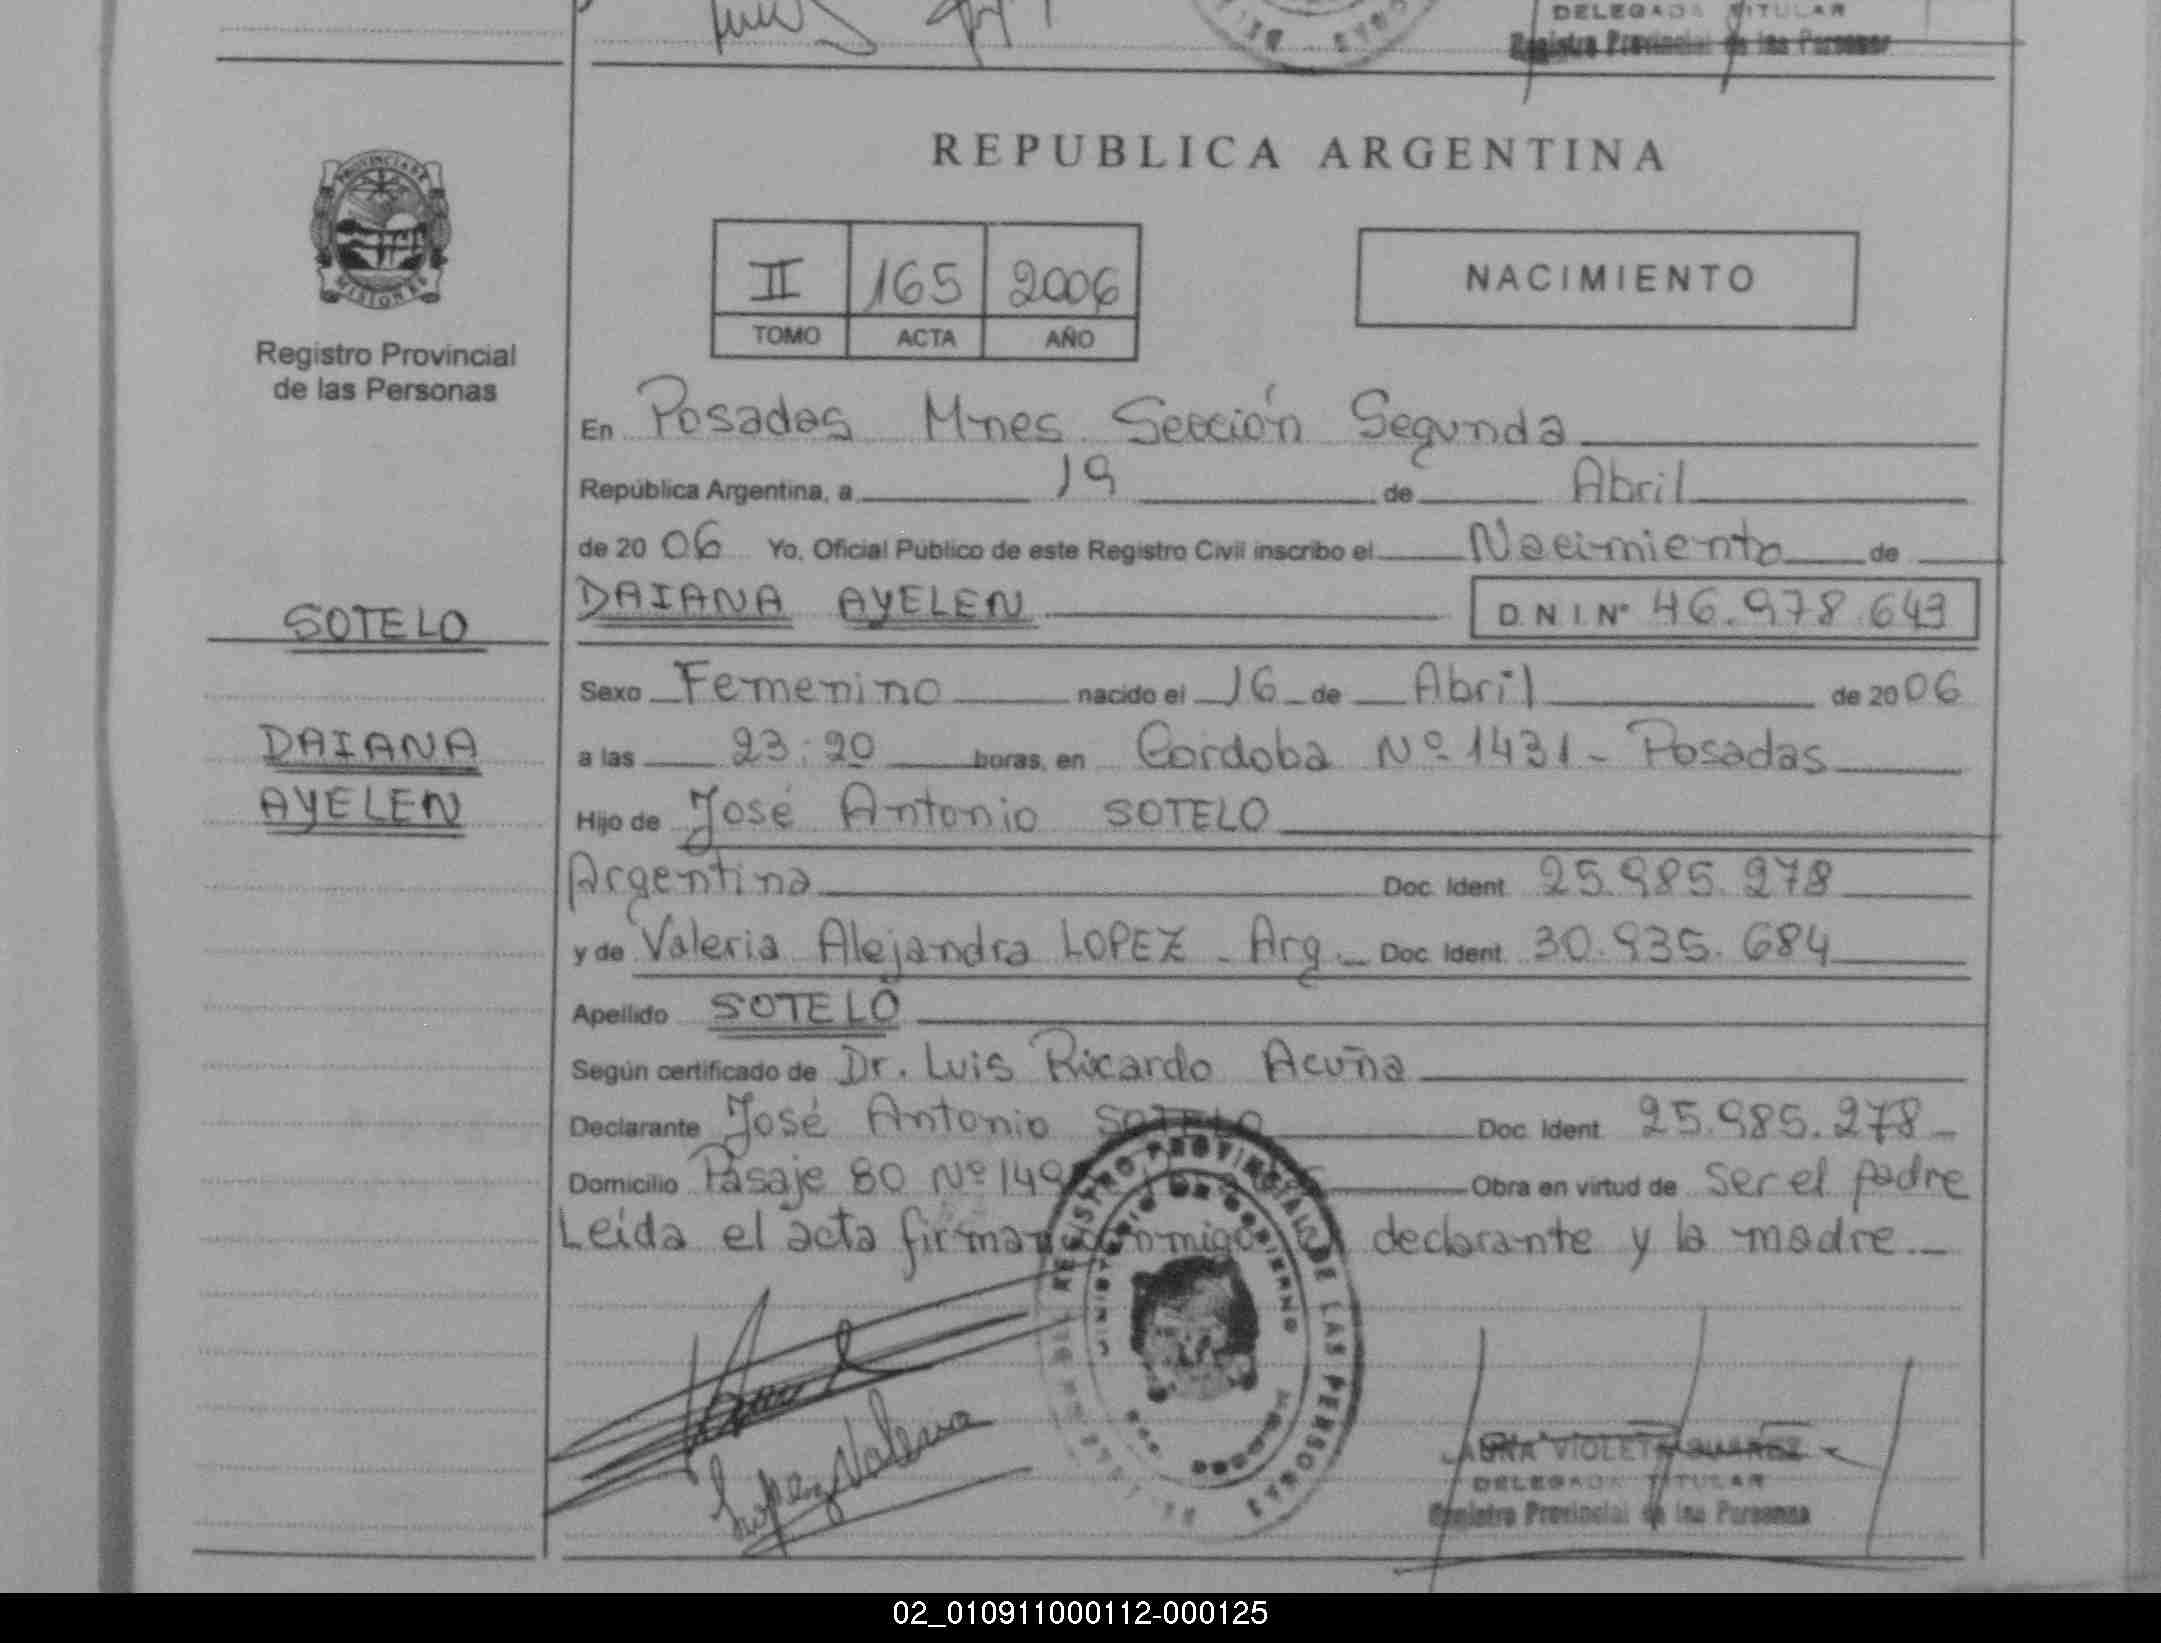 DELEGADA TITULAR
Registro Provincial de las Personas
REPUBLICA ARGENTINA
PROVINCIA DE
MISIONES
II 165 2006
TOMO ACTA AÑO
NACIMIENTO
Registro Provincial
de las Personas
En Posadas Mnes Sección Segunda
República Argentina, a 19 de Abril
de 2006 Yo, Oficial Público de este Registro Civil inscribo el Nacimiento de
SOTELO
DAIANA AYELEN D.N.I. Nº 46.978.643
Sexo Femenino nacido el 16 de Abril de 2006
DAIANA
a las 23:20 horas, en Cordoba Nº 1431 - Posadas
AYELEN
Hijo de José Antonio SOTELO
Argentina Doc. Ident. 25.985.278
y de Valeria Alejandra LOPEZ - Arg. Doc. Ident. 30.935.684
Apellido SOTELO
Según certificado de Dr. Luis Ricardo Acuña
Declarante José Antonio SOTELO Doc. Ident. 25.985.278
Domicilio Pasaje 80 Nº 149 Obra en virtud de ser el padre
Leída el acta firman conmigo declarante y la madre.
REGISTRO PROVINCIAL DE LAS PERSONAS
MINISTERIO DE GOBIERNO
Lopez Valeria
LAURA VIOLETA SUAREZ
DELEGADA TITULAR
Registro Provincial de las Personas
02_010911000112-000125